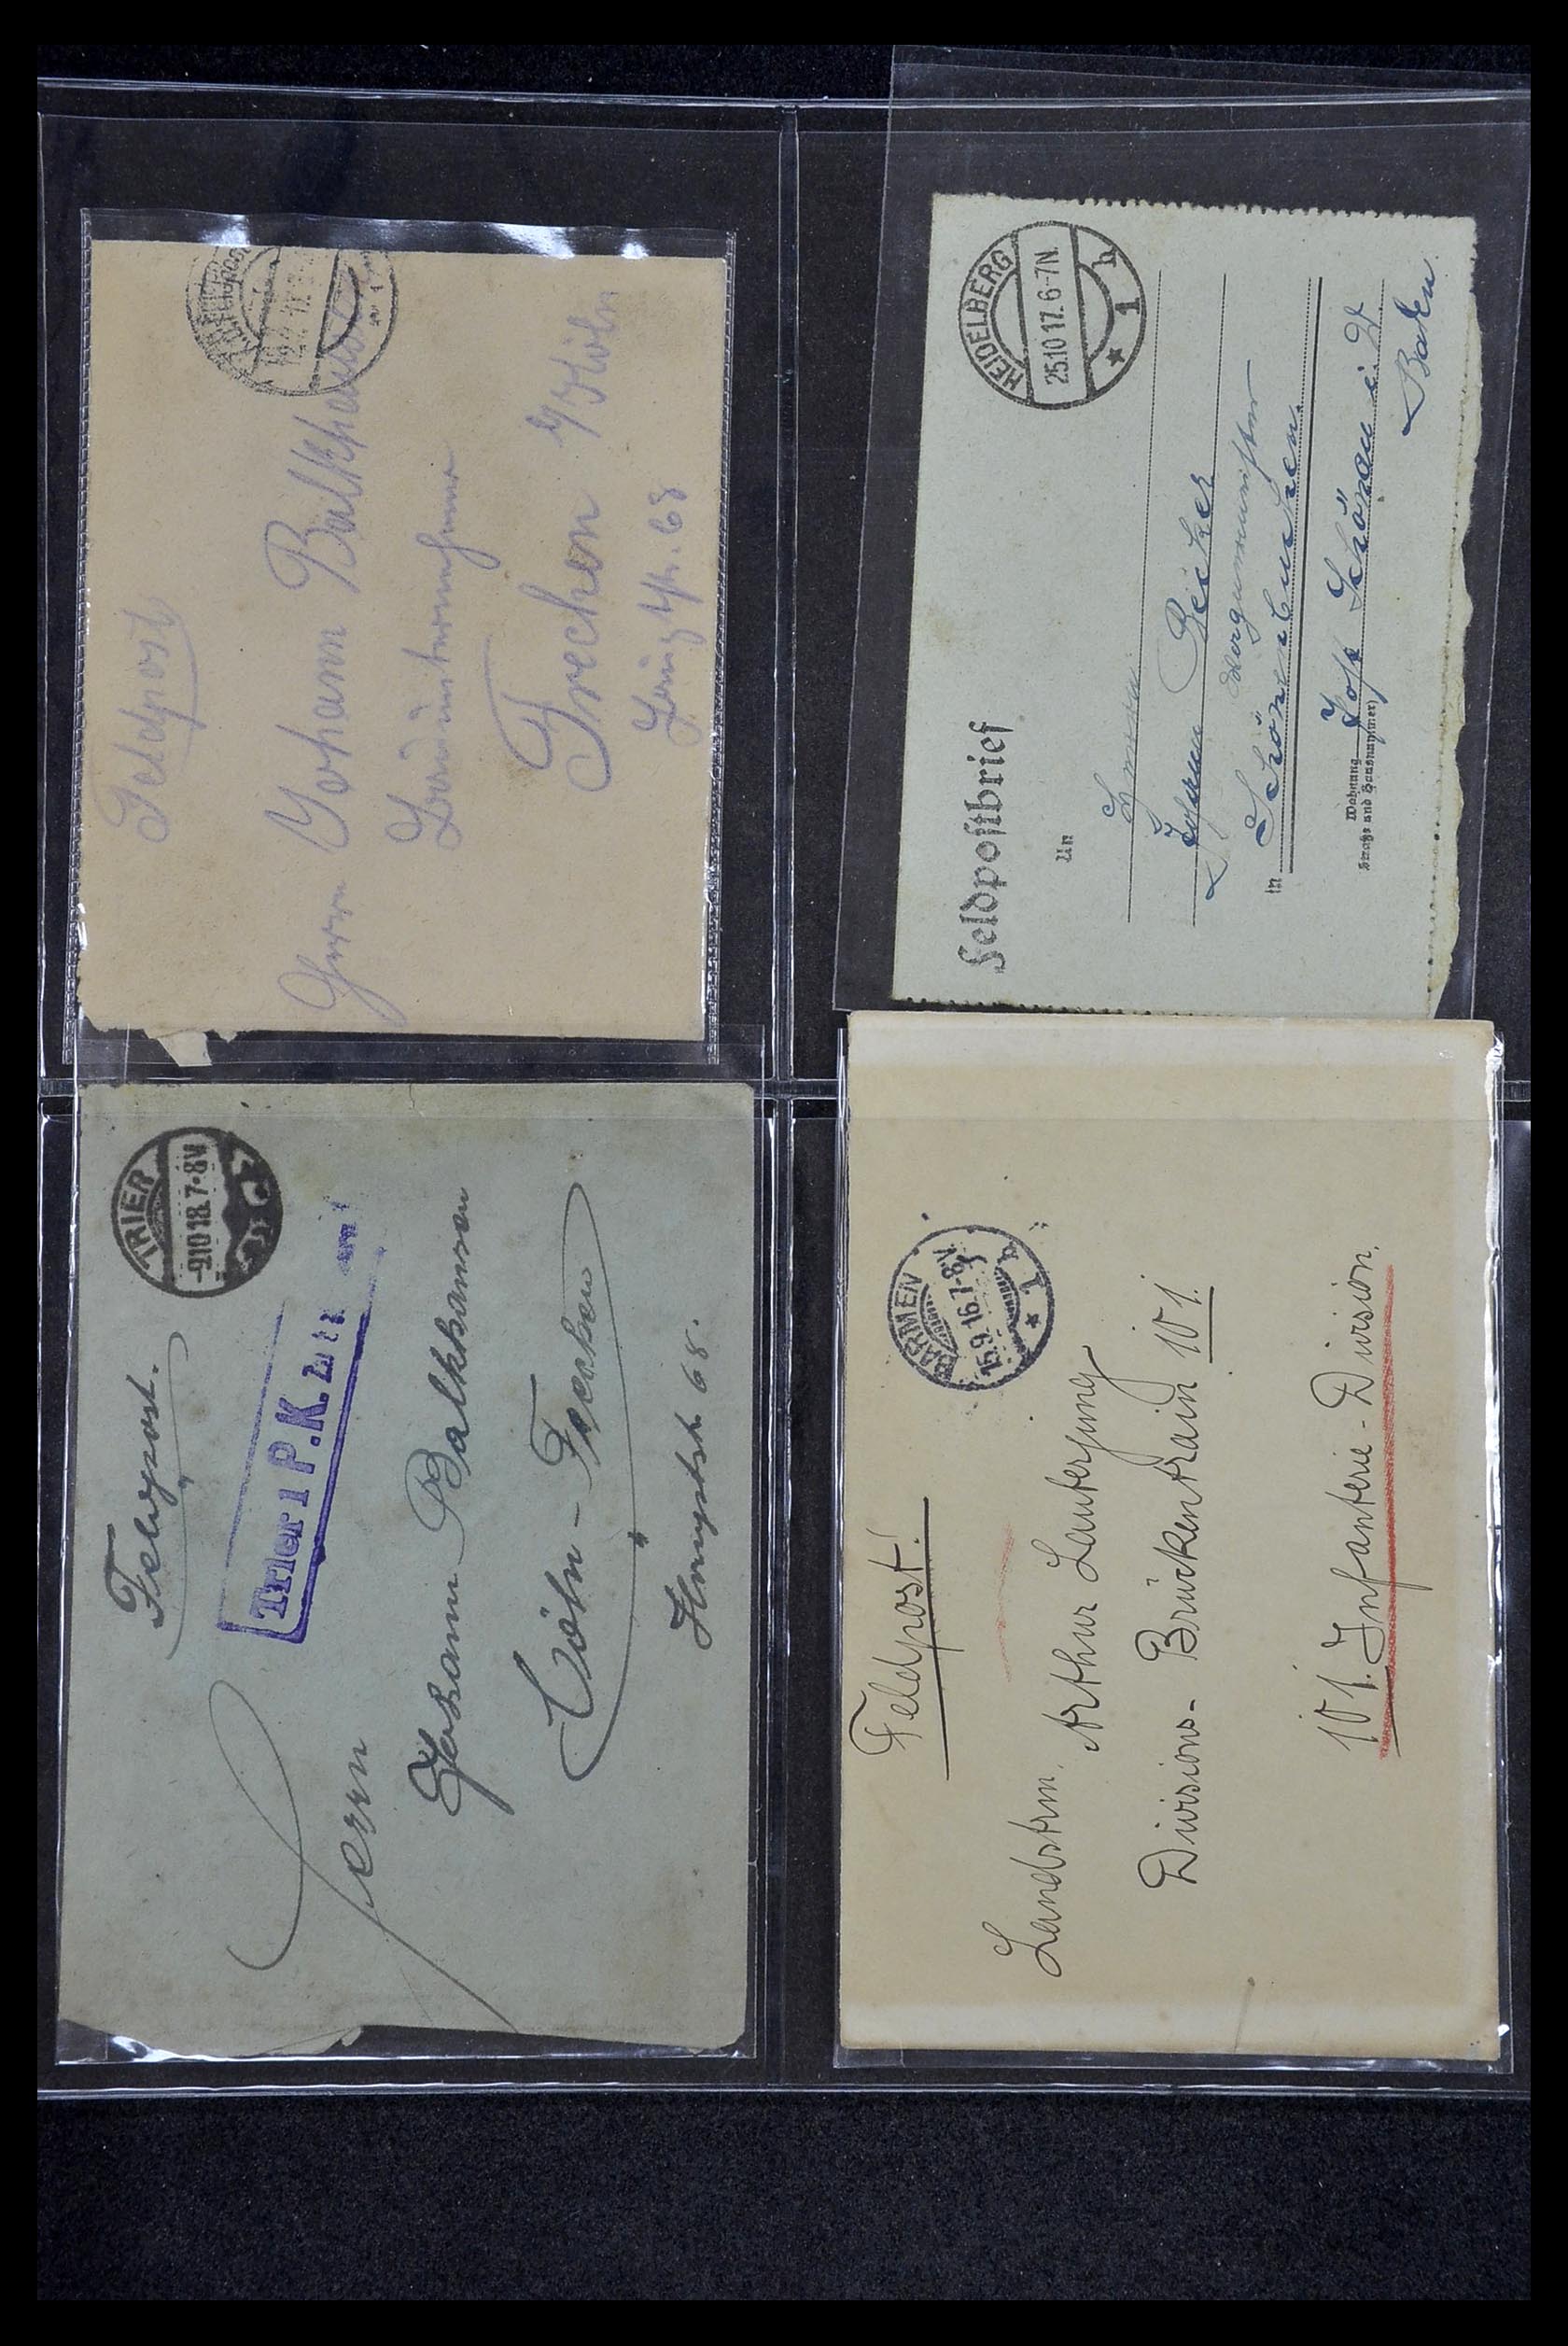 Feldpost
Herrn Johann Balkhausen
Bauunternehmer
Frechen b/Köln
68
HEIDELBERG
25.10 17. 6-7N.
* 1 b
Feldpostbrief
An
Herrn
Johann Becker
in Schönenbuchen
Wohnung
(Straße und Hausnummer)
Post Schönau i. W.
Baden
TRIER
-9.10 18. 7-8V
Feldpost.
Trier 1 P.K.
Herrn
Johann Balkhausen
Cöln - Frechen
Hauptstr. 68.
BARMEN
15.9.16.7-8V.
* 1 b
Feldpost!
Landstrm.
Arthur Lauterjung
Divisions- Brückentrain 101.
101. Infanterie - Division.